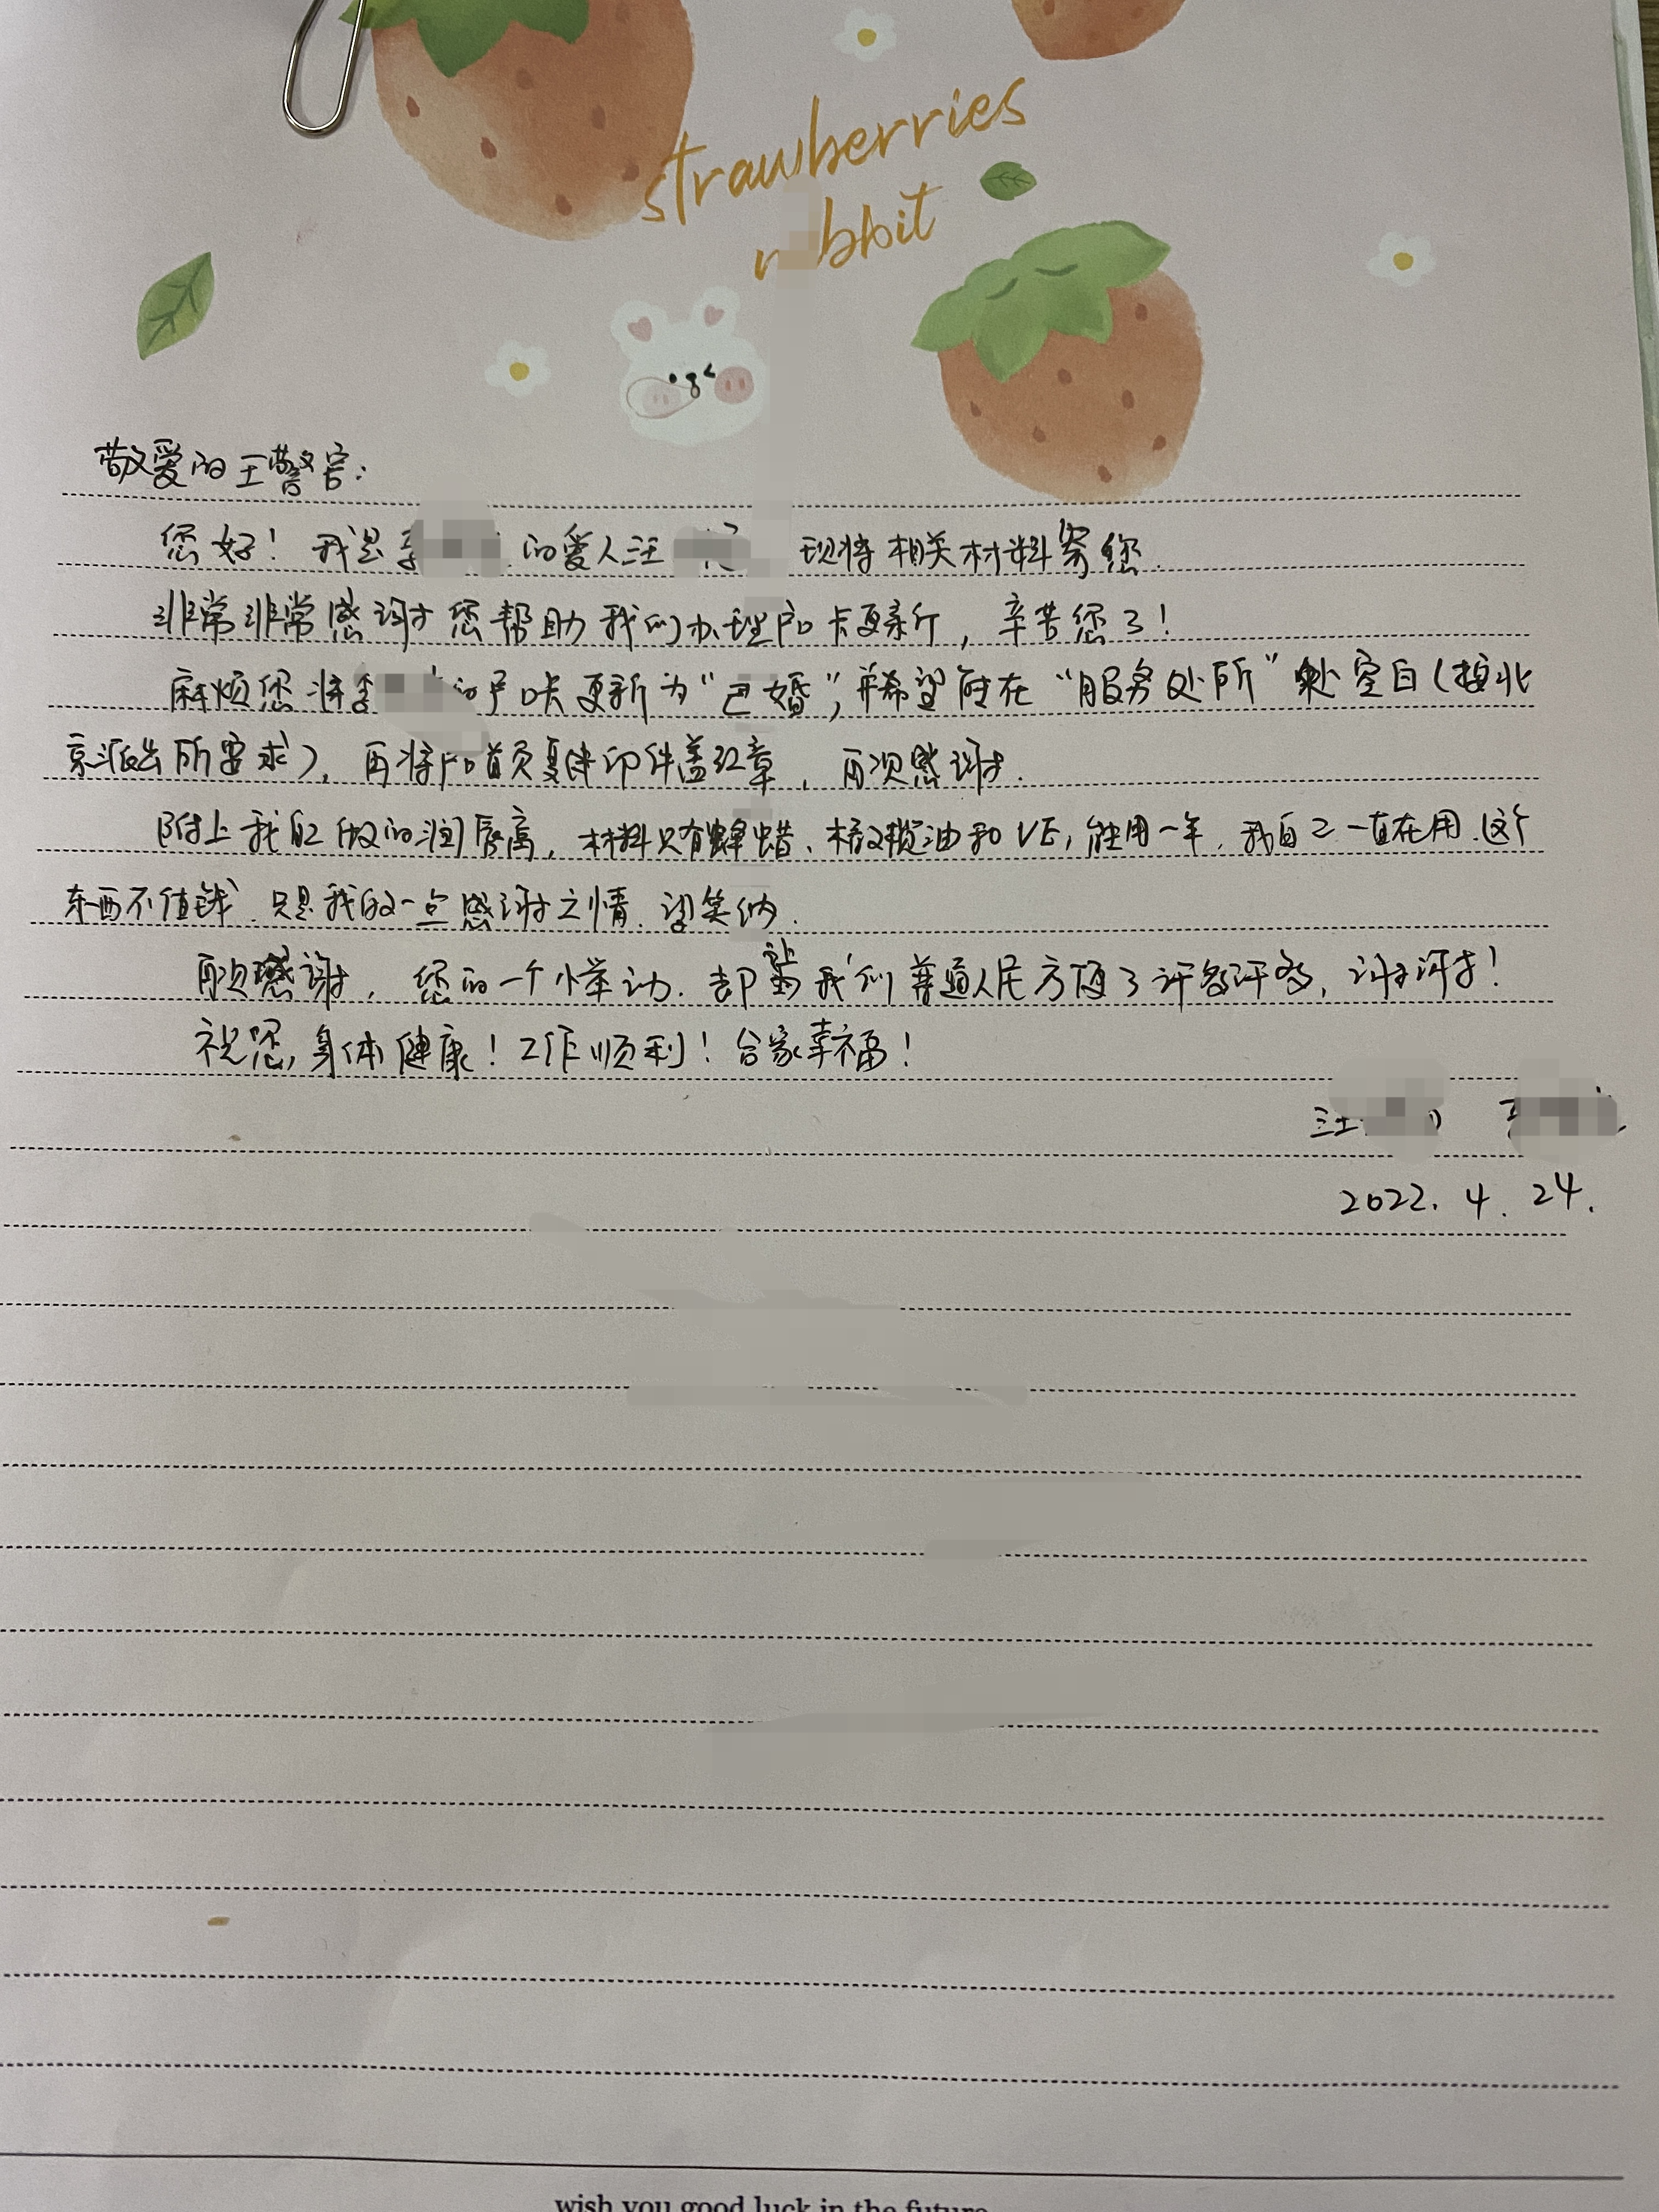 strawberries
r bbit
敬爱的王警官：
您好！我是 的爱人汪 现将相关材料寄您.
非常非常感谢您帮助我们办理户口卡更新，辛苦您了！
麻烦您将 的户口卡更新为“已婚”，并希望能在“服务处所”处空白（按北
京派出所要求），再将户口首页复印件盖红章，再次感谢.
附上我自己做的润唇膏，材料只有蜂蜡、橄榄油和VE，能用一年，我自己一直在用.这个
东西不值钱，只是我的一点感谢之情.望笑纳.
再次感谢，您的一个小举动.却让我们普通人民方便了许多许多，谢谢！
祝您，身体健康！工作顺利！合家幸福！
汪
2022.4.24.
wish you good luck in the future